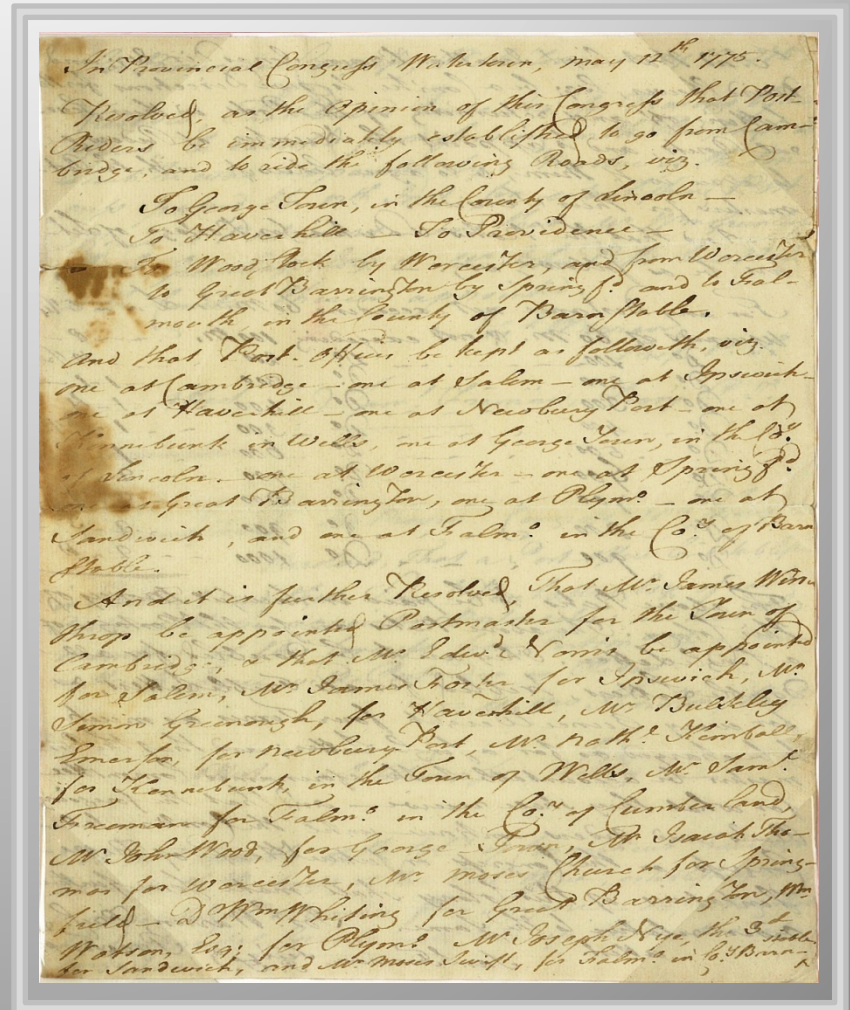 In Provincial Congress Watertown, may 12th 1775.
Resolved, as the Opinion of this Congress that Post-
Riders be immediately established to go from Cam-
bridge, and to ride the following Roads, viz.
To George Town, in the County of Lincoln —
To Haverhill — To Providence —
To Woodstock by Worcester, and from Worcester
to Great Barrington by Springfd. and to Fal-
mouth in the County of Barnstable.
And that Post-Offices be kept as followeth, viz.
one at Cambridge — one at Salem — one at Ipswich —
one at Haverhill — one at Newbury Port — one at
Kennebunk in Wells, one at George Town, in the Coy.
of Lincoln — one at Worcester — one at Springfd.
one at Great Barrington, one at Plymo. — one at
Sandwich, and one at Falmo. in the Coy. of Barn
stable.
And it is further Resolved, That Mr. James Win-
throp be appointed Postmaster for the Town of
Cambridge, & that Mr. Edwd. Norris be appointed
for Salem, Mr. James Foster for Ipswich, Mr.
Simon Greenough, for Haverhill, Mr. Bulkeley
Emerson, for Newbury Port, Mr. Nathl. Kimball,
for Kennebunk, in the Town of Wells, Mr. Saml.
Freeman for Falmo. in the Coy. of Cumberland,
Mr. John Wood, for George Town, Mr. Isaiah Tho-
mas for Worcester, Mr. Moses Church for Spring-
field — D Wm Whiting for Great Barrington, Wm
Watson, Esq; for Plymo. Mr. Joseph Nye, the 3d
for Sandwich, and Mr. Moses Swift, for Falmo. in Coy Barn-
stable